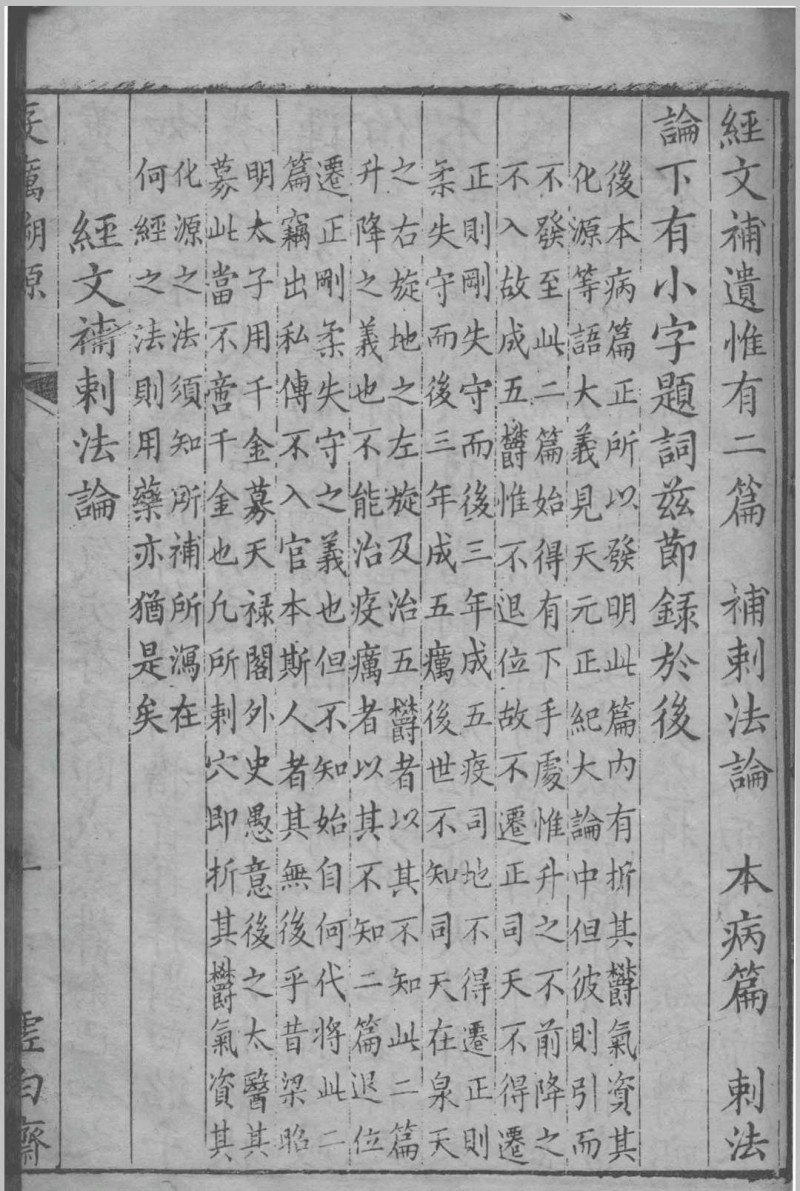 經文補遺惟有二篇　補刺法論　本病篇　刺法
論下有小字題詞茲節錄於後
後本病篇正所以發明此篇內有折其欝氣資其
化源等語大義見天元正紀大論中但彼則引而
不發至此二篇始得有下手處惟升之不前降之
不入故成五欝惟不退位故不遷正司天不得遷
正則剛失守而後三年成五疫司地不得遷正則
柔失守而後三年成五癘後世不知司天在泉天
之右旋地之左旋及治五欝者以其不知此二篇
升降之義也不能治疫癘者以其不知二篇退位
遷正剛柔失守之義也但不知始自何代將此二
篇竊出私傳不入官本斯人者其無後乎昔梁昭
明太子用千金募天祿閣外史愚意後之太醫其
募此當不啻千金也凡所刺穴即折其欝氣資其
化源之法須知所補所瀉在
何經之法則用藥亦猶是矣
經文補刺法論
疫癘溯源　一　虛白齋